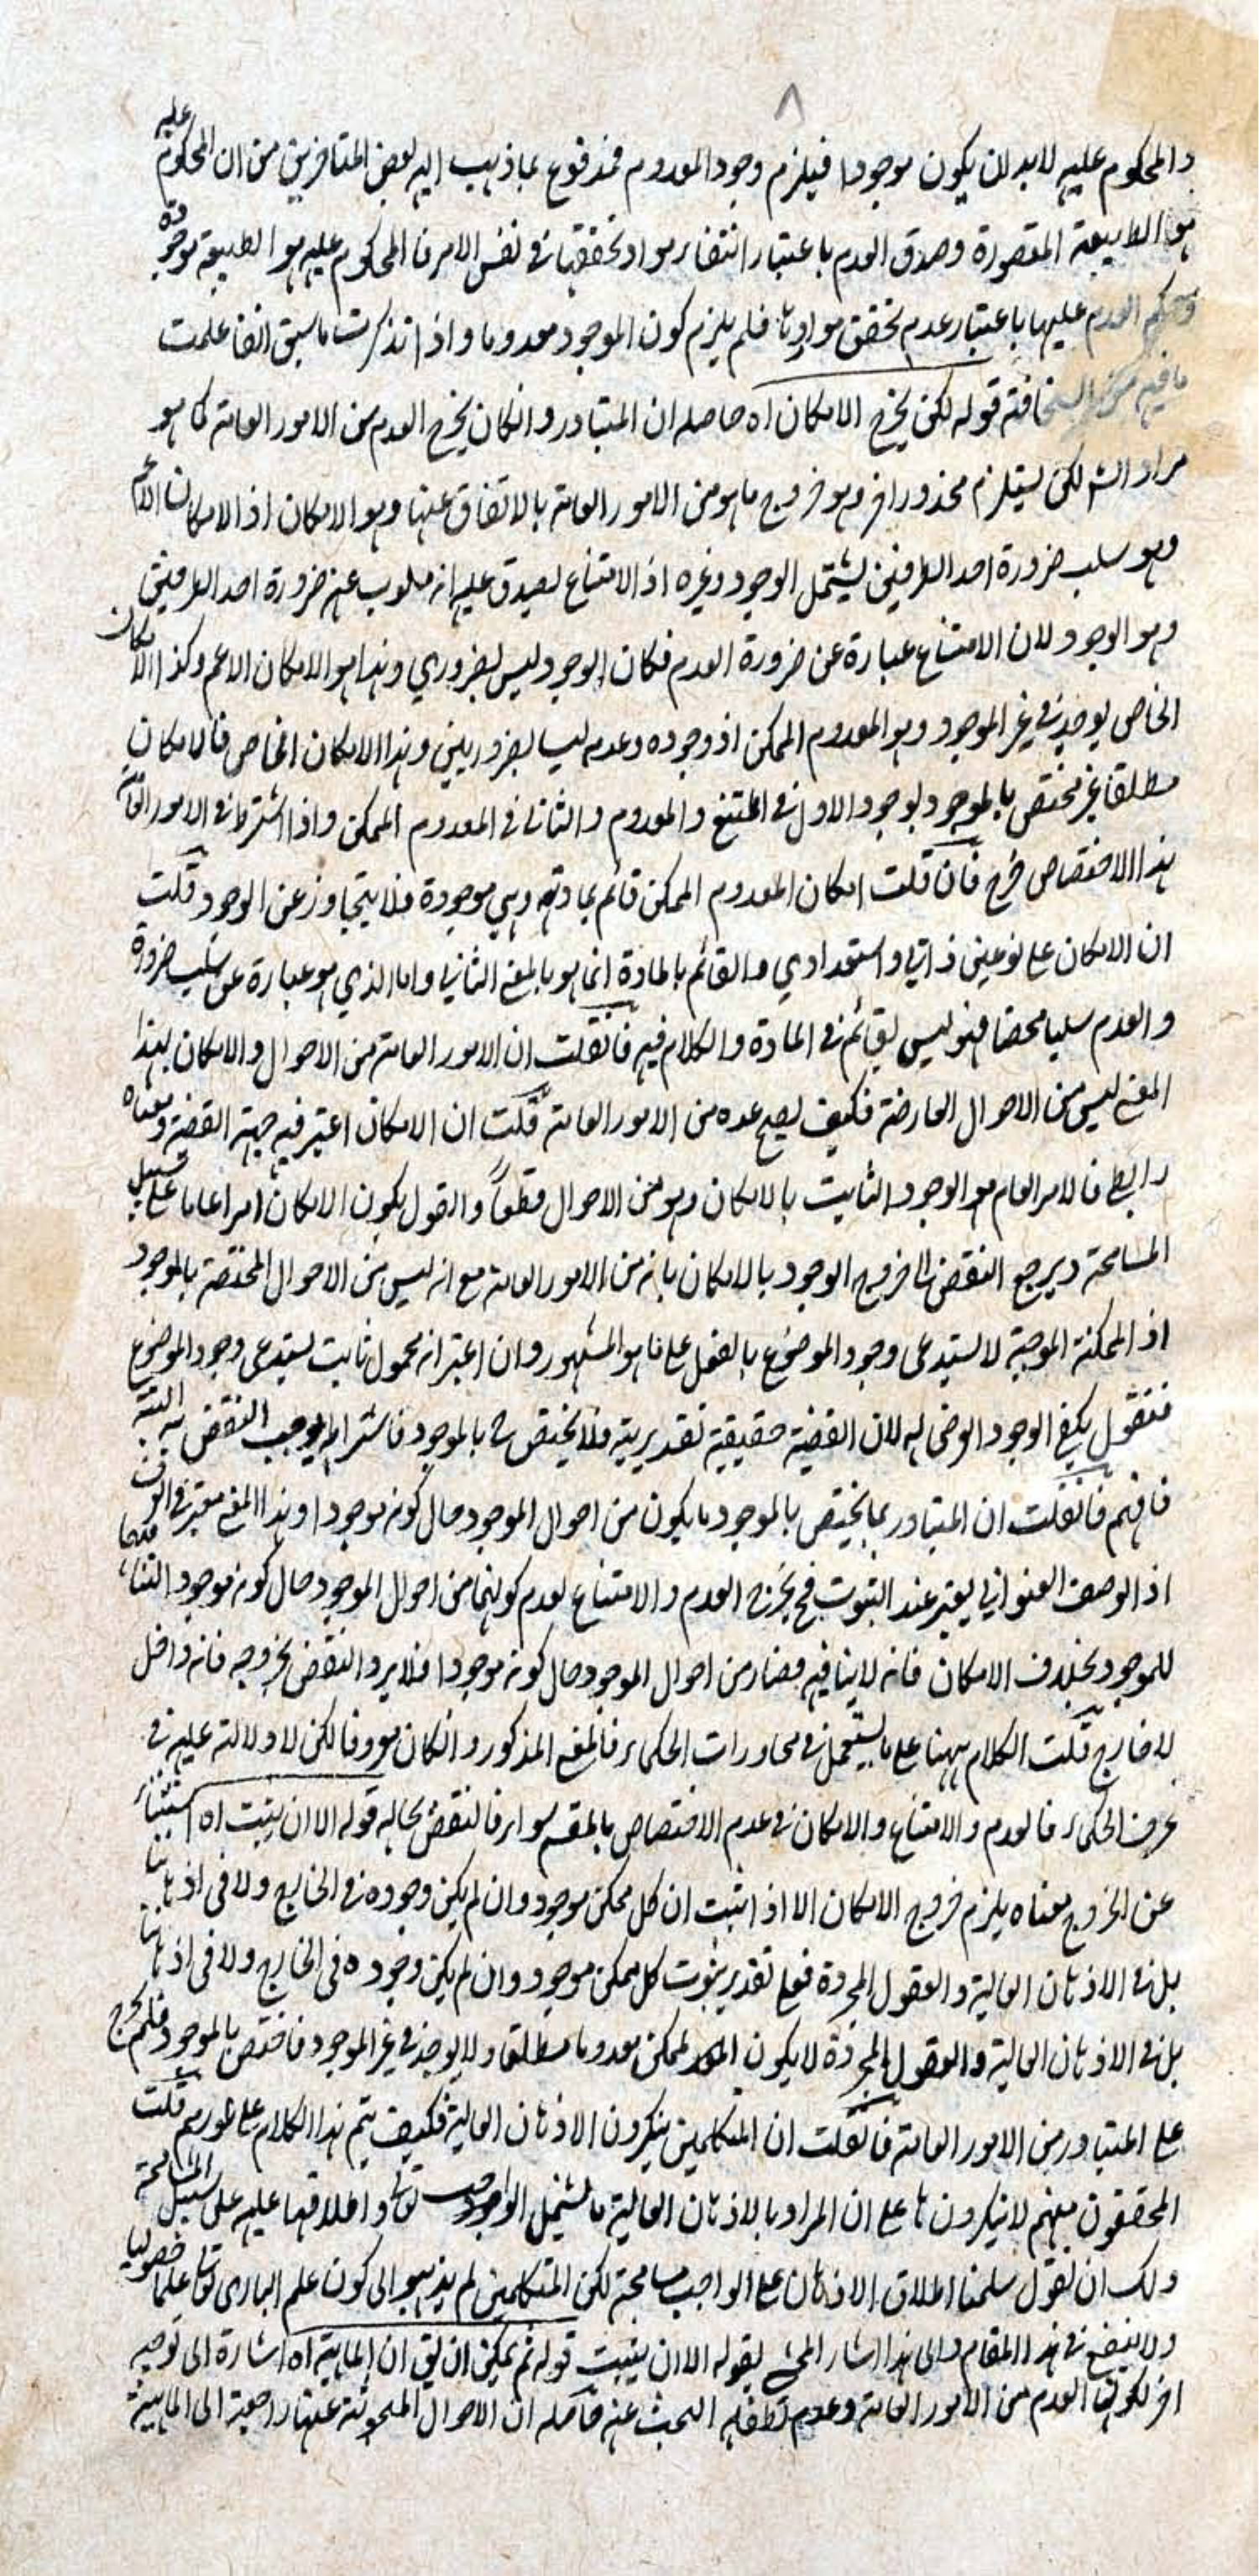 ٨
والمحكوم عليه لابد ان يكون موجودا فيلزم وجود المعدوم فمدفوع بما ذهب اليه بعض المتاخرين من ان المحكوم عليه
هو الطبيعة المقصورة وصدق العدم باعتبار انتفاء مواد تحققها في نفس الامر فالمحكوم عليه هو الطبيعة موجودة
وحكم العدم عليها باعتبار عدم تحقق موادها فلم يلزم كون الموجود معدوما واذا تذكرت ما سبق انفا علمت
ما فيه من السخافة قوله لكن يخرج الامكان اه حاصله ان المتبادر وانكان يخرج العدم من الامور العامة كما هو
مراد الشه لكن يستلزم محذورا اخر وهو خروج ما هو من الامور العامة بالاتفاق عنها وهو الامكان اذ الامكان
وهو سلب ضرورة احد الطرفين يشتمل الوجود وغيره اذ الامتناع يصدق عليه انه مسلوب عنه ضرورة احد الطرفين
وهو الوجود لان الامتناع عبارة عن ضرورة العدم فكان الوجود ليس بضروري وهذا هو الامكان الاعم وكذا الامكان
الخاص يوجد في غير الموجود وهو المعدوم الممكن اذ وجوده وعدمه ليسا بضروريين وهذا الامكان الخاص فالامكان
مطلقا غير مختص بالموجود لوجود الاول في الممتنع والمعدوم والثاني في المعدوم الممكن واذا اشترط في الامور العامة
هذا الاختصاص خرج فان قلت امكان المعدوم الممكن قائم بمادته وهي موجودة فلا يتجاوز عن الوجود قلت
ان الامكان على نوعين ذاتي واستعدادي والقائم بالمادة انما هو بالمعنى الثاني واما الذي هو عبارة عن سلب ضرورة
والعدم سلبا محضا فهو ليس بقائم في المادة والكلام فيه فانقلت ان الامور العامة من الاحوال والامكان بهذا
المعنى ليس من الاحوال العارضة فكيف يصح عده من الامور العامة قلت ان الامكان اعتبر فيه جهة القضية ومعناه
رابطي فالامر العام هو الوجود الثابت بالامكان وهو من الاحوال قطعاً والقول بكون الامكان امرا عاما على سبيل
المسامحة ويرجع النقض الى خروج الوجود بالامكان بانه من الامور العامة مع انه ليس من الاحوال المختصة بالموجود
اذ الممكنة الموجبة لا يستدعى وجود الموضوع بالفعل على ما هو المشهور وان اعتبر انه محمول ثابت يستدعى وجود الموضوع
فنقول يكفي الوجود الفرضي له لان القضية حقيقية تقديرية فلا يختص ح بالموجود فاشتراطه يوجب النقض به البتة
فافهم فانقلت ان المتبادر بما يختص بالموجود ما يكون من احوال الموجود حال كونه موجودا وهذا المعنى معتبر في العرف
اذ الوصف العنواني يعتبر عند الثبوت فح يخرج العدم والامتناع لعدم كونهما من احوال الموجود حال كونه موجودا لتنافيهما
للموجود بخلاف الامكان فانه لا ينافيه فصار من احوال الموجود حال كونه موجودا فلا يرد النقض بخروجه فانه داخل
لا خارج قلت الكلام ههنا على ما يستعمل في محاورات الحكماء فالمعنى المذكور وانكان معروفا لكن لا دلالة عليه في
عرف الحكماء فالعدم والامتناع والامكان في عدم الاختصاص بالمقسم سواء فالنقض بحاله قوله الا ان يثبت اه استثناء
عن الخروج معناه يلزم خروج الامكان الا اذا ثبت ان كل ممكن موجود وان لم يكن وجوده في الخارج ولا في اذهاننا
بل في الاذهان العالية والعقول المجردة فعلى تقدير ثبوت كل ممكن موجود وان لم يكن وجوده في الخارج ولا في اذهاننا
بل في الاذهان العالية والعقول المجردة لا يكون الممكن معدوما مطلقا ولا يوجد في غير الموجود فاختص بالموجود فلم يخرج
على المتبادر من الامور العامة فانقلت ان المتكلمين ينكرون الاذهان العالية فكيف يتم هذا الكلام على طورهم قلت
المحققون منهم لا ينكرونها على ان المراد بالاذهان العالية ما يشمل الواجب تعالى واطلاقها عليه على سبيل المسامحة
ولك ان تقول سلمنا اطلاق الاذهان على الواجب مسامحة لكن المتكلمين لم يذهبوا الى كون علم البارى تعالى علما حصوليا
ولا ينفع في هذا المقام والى هذا اشار المحشي بقوله الا ان يثبت قوله ثم يمكن ان يق ان الماهية اه اشارة الى توجيه
اخر لكون العدم من الامور العامة وعدم البحث عنه فحاصله ان الاحوال المبحوثة عنها راجعة الى الماهية